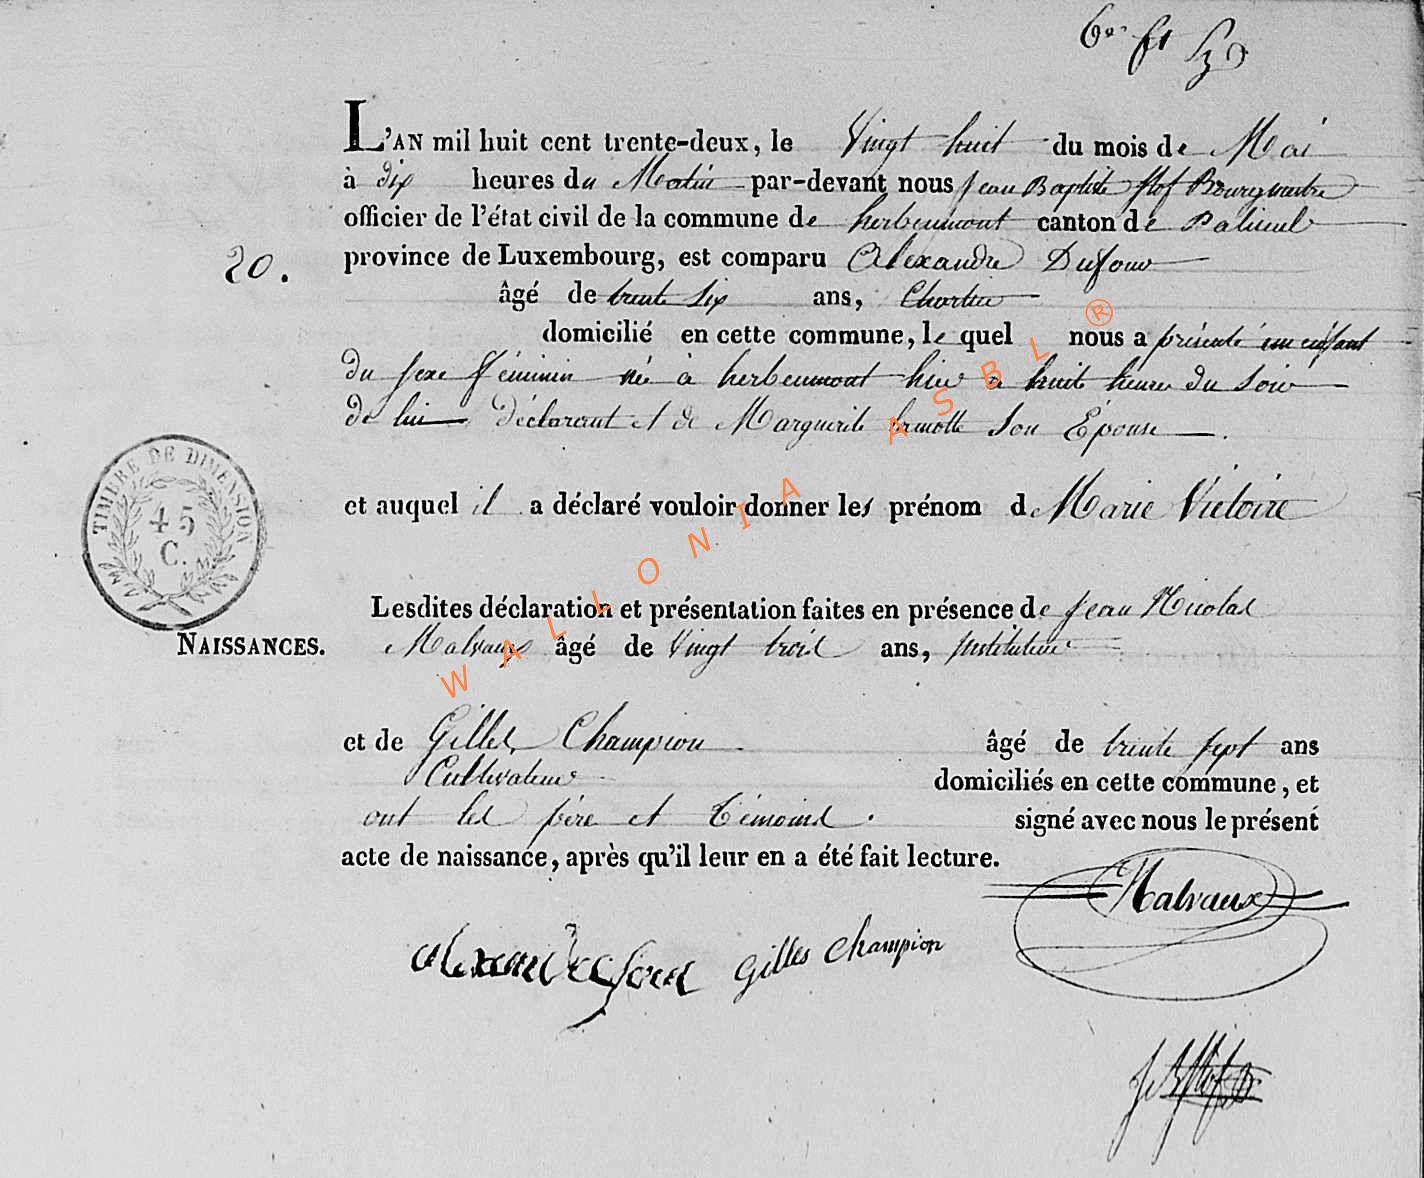 L'AN mil huit cent trente-deux, le Vingt huit du mois de Mai
à dix heures du Matin par-devant nous Jean Baptiste Bourgmestre
officier de l'état civil de la commune de herbeumont canton de Paliseul
20. province de Luxembourg, est comparu Alexandre Dufour
âgé de trente Six ans,
domicilié en cette commune, le quel nous a présenté un enfant
du sexe féminin née à herbeumont hier a huit heures du Soir
de lui déclarant et de Marguerite Son Épouse.
TIMBRE DE DIMENSION
45
C.
et auquel il a déclaré vouloir donner les prénom de Marie Victoire
Lesdites déclaration et présentation faites en présence de Jean Nicolas
NAISSANCES. Malvaux âgé de Vingt trois ans, Instituteur
et de Gilles Champion âgé de trente sept ans
Cultivateur domiciliés en cette commune, et
ont les père et témoins. signé avec nous le présent
acte de naissance, après qu'il leur en a été fait lecture.
Malvaux
Gilles Champion
WALLONIA ASBL ®